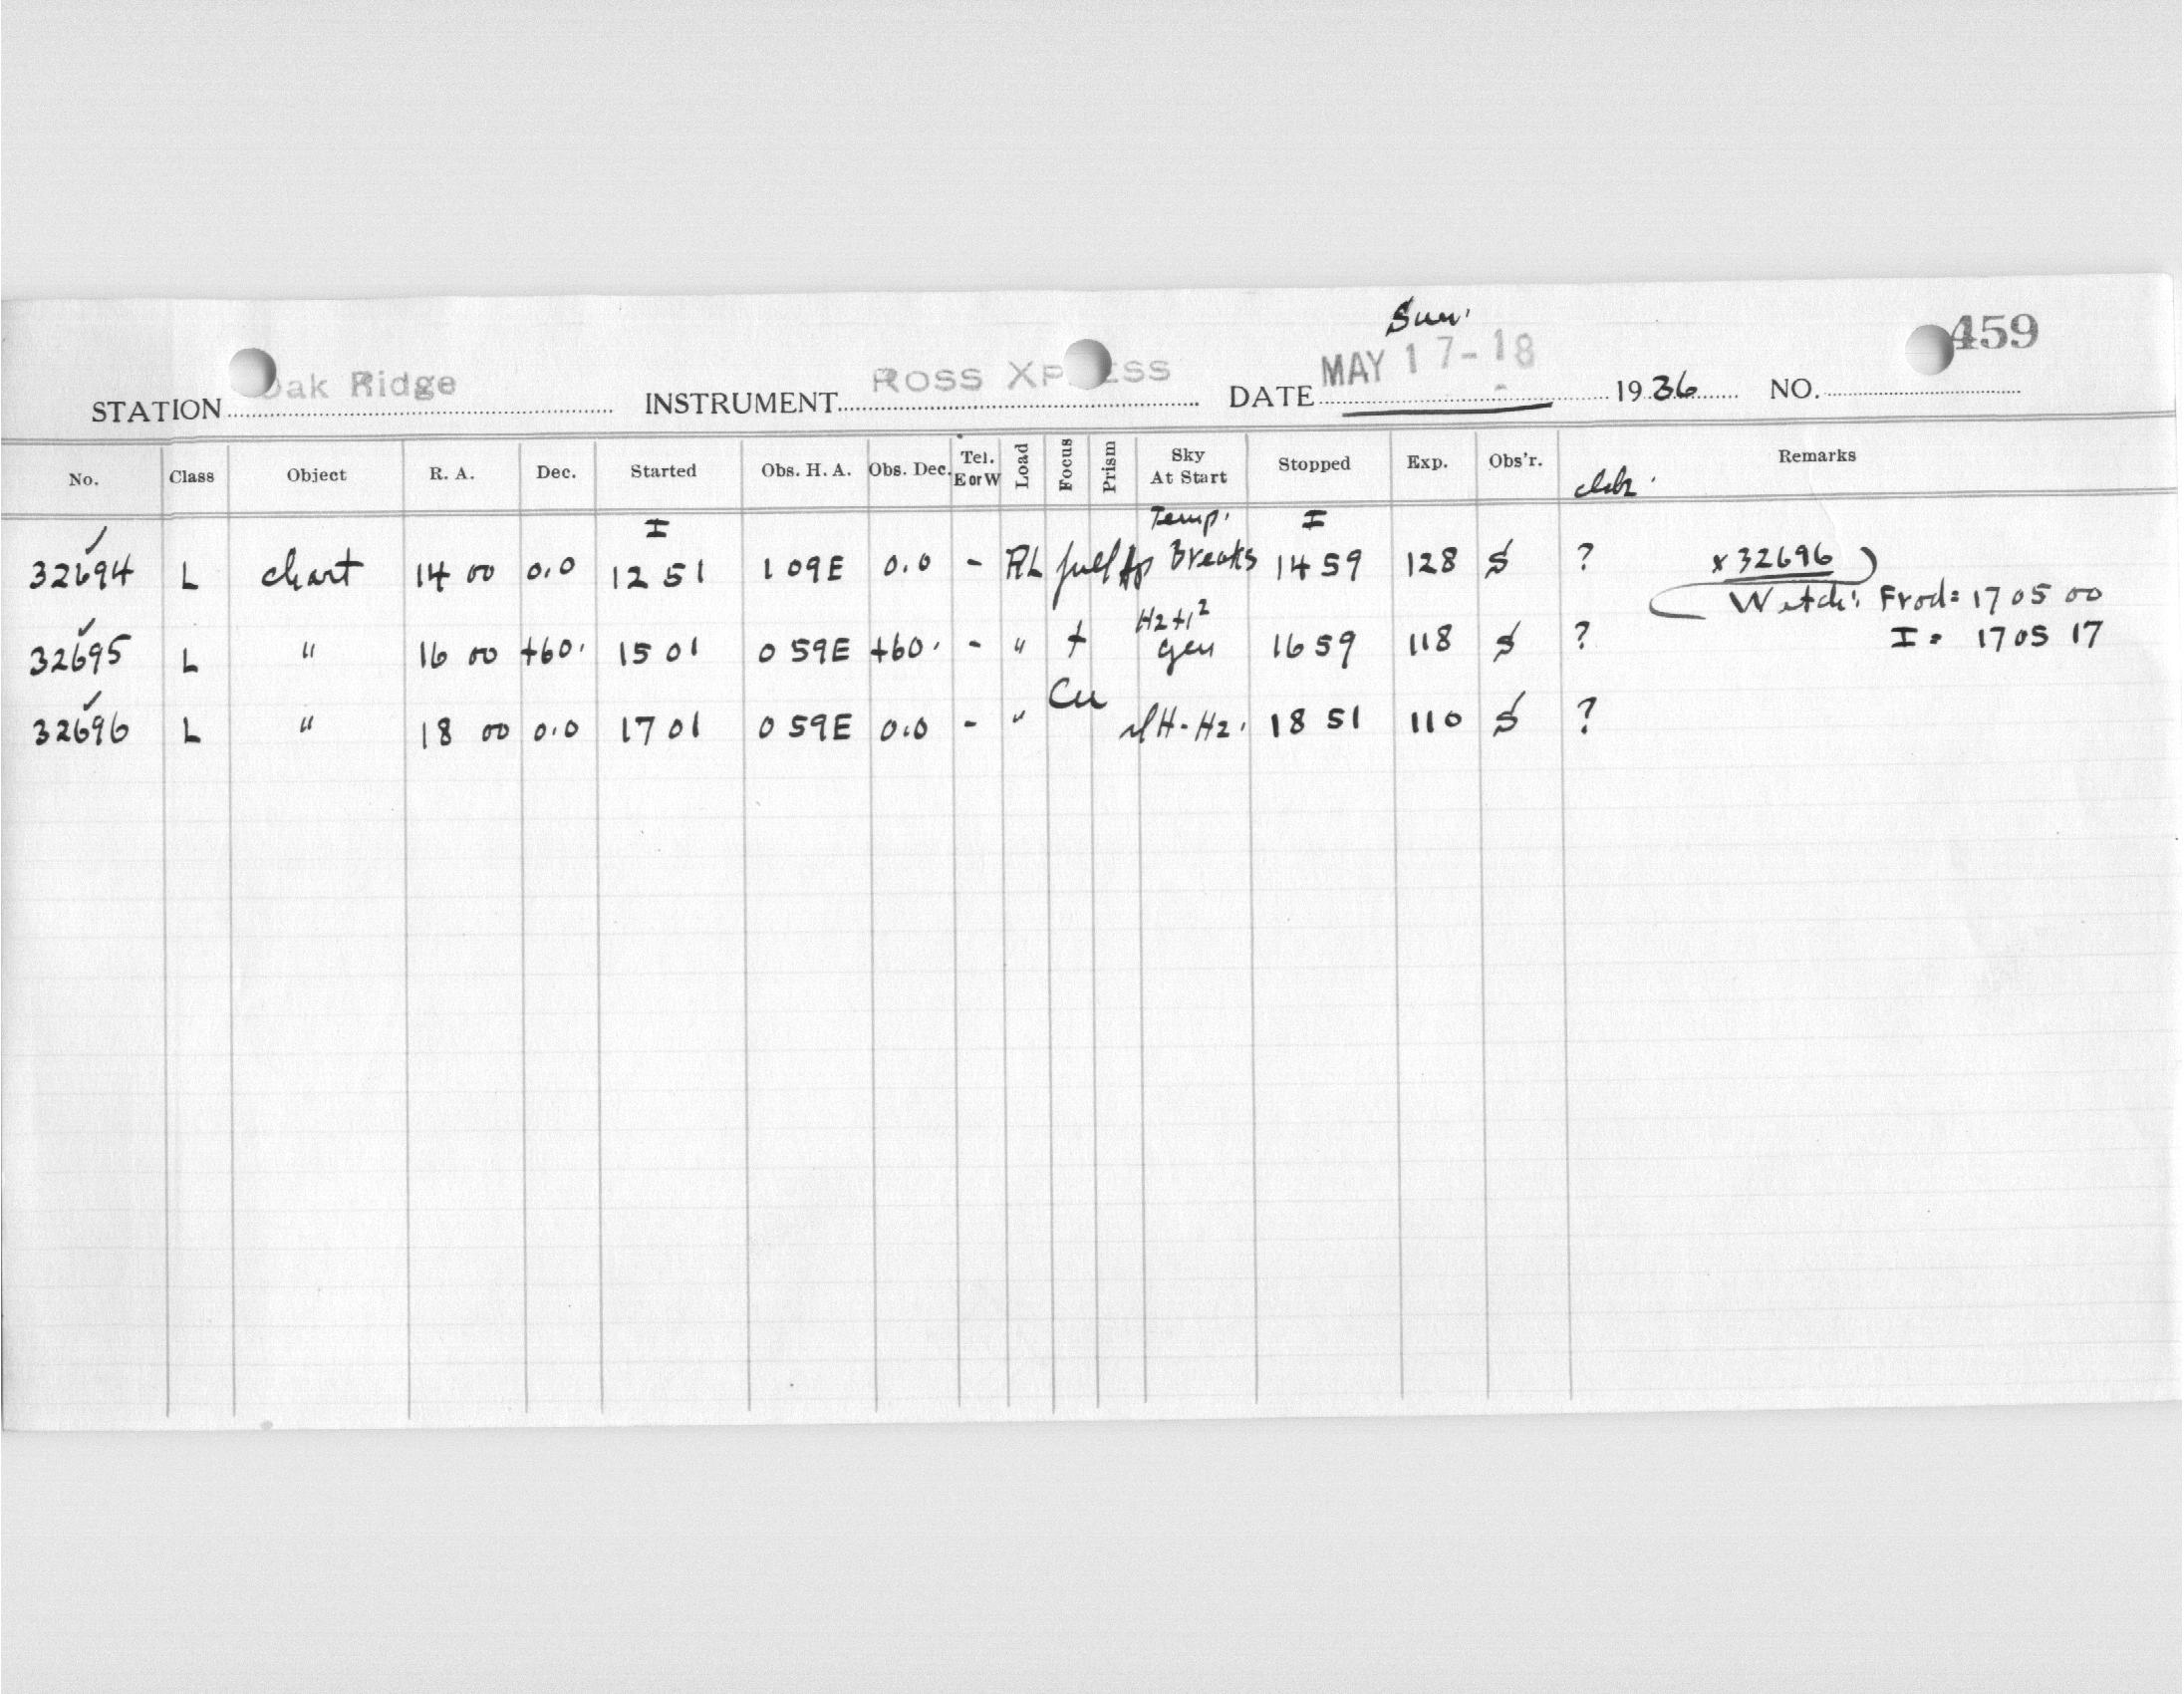 Sun.
459
STATION Oak Ridge INSTRUMENT ROSS XPRESS DATE MAY 17-18 1936 NO.
No. Class Object R. A. Dec. Started Obs. H. A. Obs. Dec. Tel. E or W Load Focus Prism Sky At Start Stopped Exp. Obs'r. Remarks
I Temp. I
32694 L chart 14 00 0.0 12 51 1 09E 0.0 - RL full Ap Breaks 14 59 128 S ? x 32696
Watch: Frod = 17 05 00
Hz+1²
32695 L " 16 00 +60. 15 01 0 59E +60. - " + gen 16 59 118 S ? I = 17 05 17
Cu
32696 L " 18 00 0.0 17 01 0 59E 0.0 - " sl H-Hz. 18 51 110 S ?